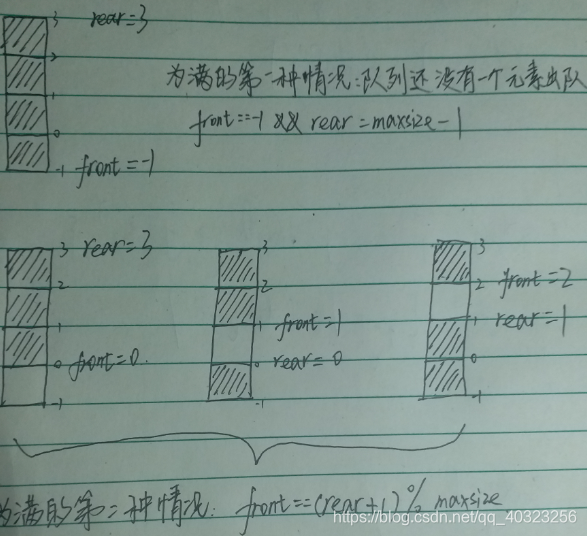 3 rear=3
2
为满的第一种情况:队列还没有一个元素出队
1
front==-1 && rear=maxsize-1
0
-1 front=-1
3 rear=3
3
3
2
2
2 front=2
1
1 front=1
1 rear=1
0 front=0.
0 rear=0
0
-1
-1
-1
为满的第二种情况: front==(rear+1)% maxsize
https://blog.csdn.net/qq_40323256